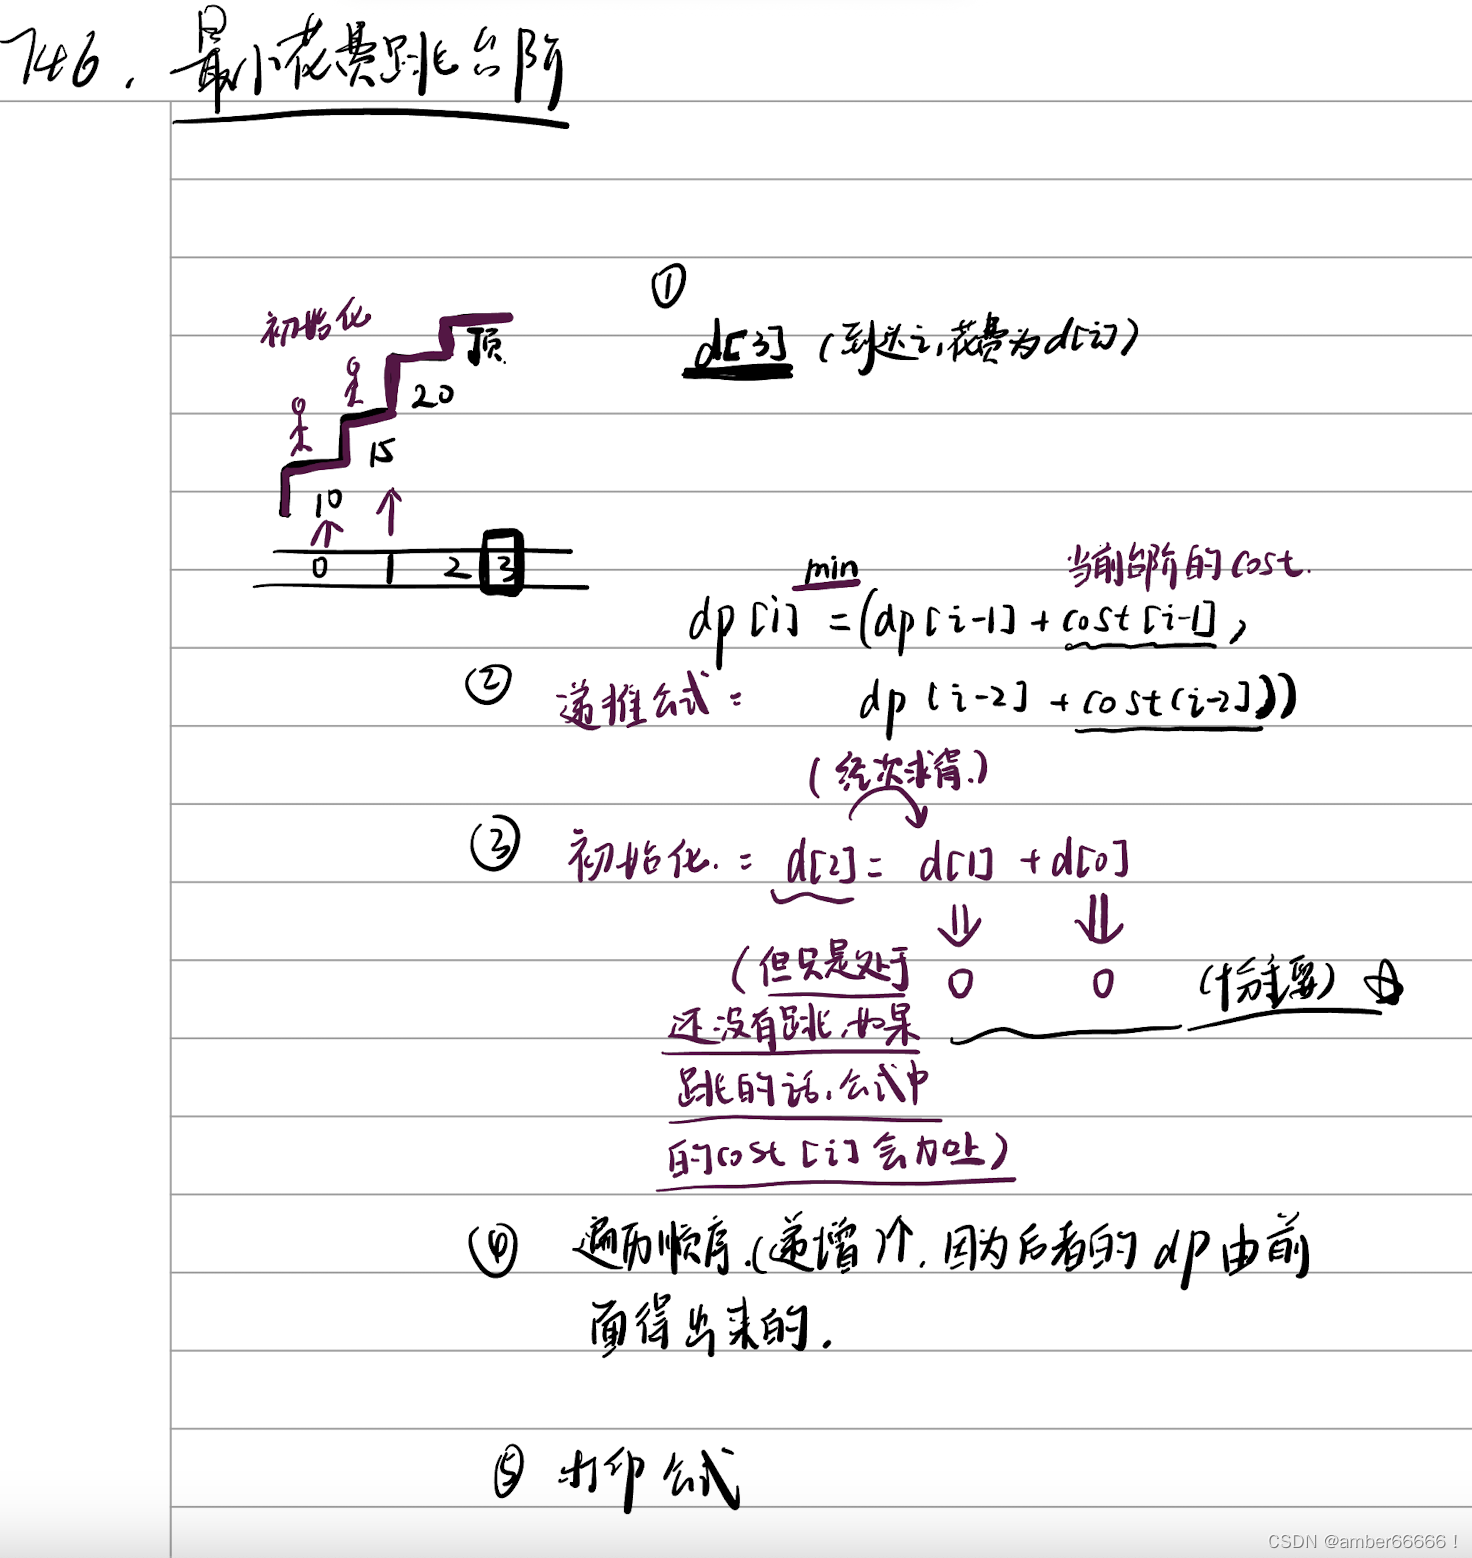 746. 最小花费跳台阶
①
初始化
d[3] (到达i,花费为d[i])
顶
20
15
10
0 1 2 3
min
当前台阶的cost.
dp[i] =(dp[i-1]+cost[i-1],
② 递推公式: dp[i-2]+cost(i-2]))
求得.)
③ 初始化. = d[2]= d[1] +d[0]
(但只是处于 0 0 (十分重要)
还没有跳,如果
跳的话,公式中
的cost[i]会加上)
④ 遍历顺序.(递增)个,因为后者的dp由前
面得出来的.
⑤ 打印公式
CSDN @amber66666!